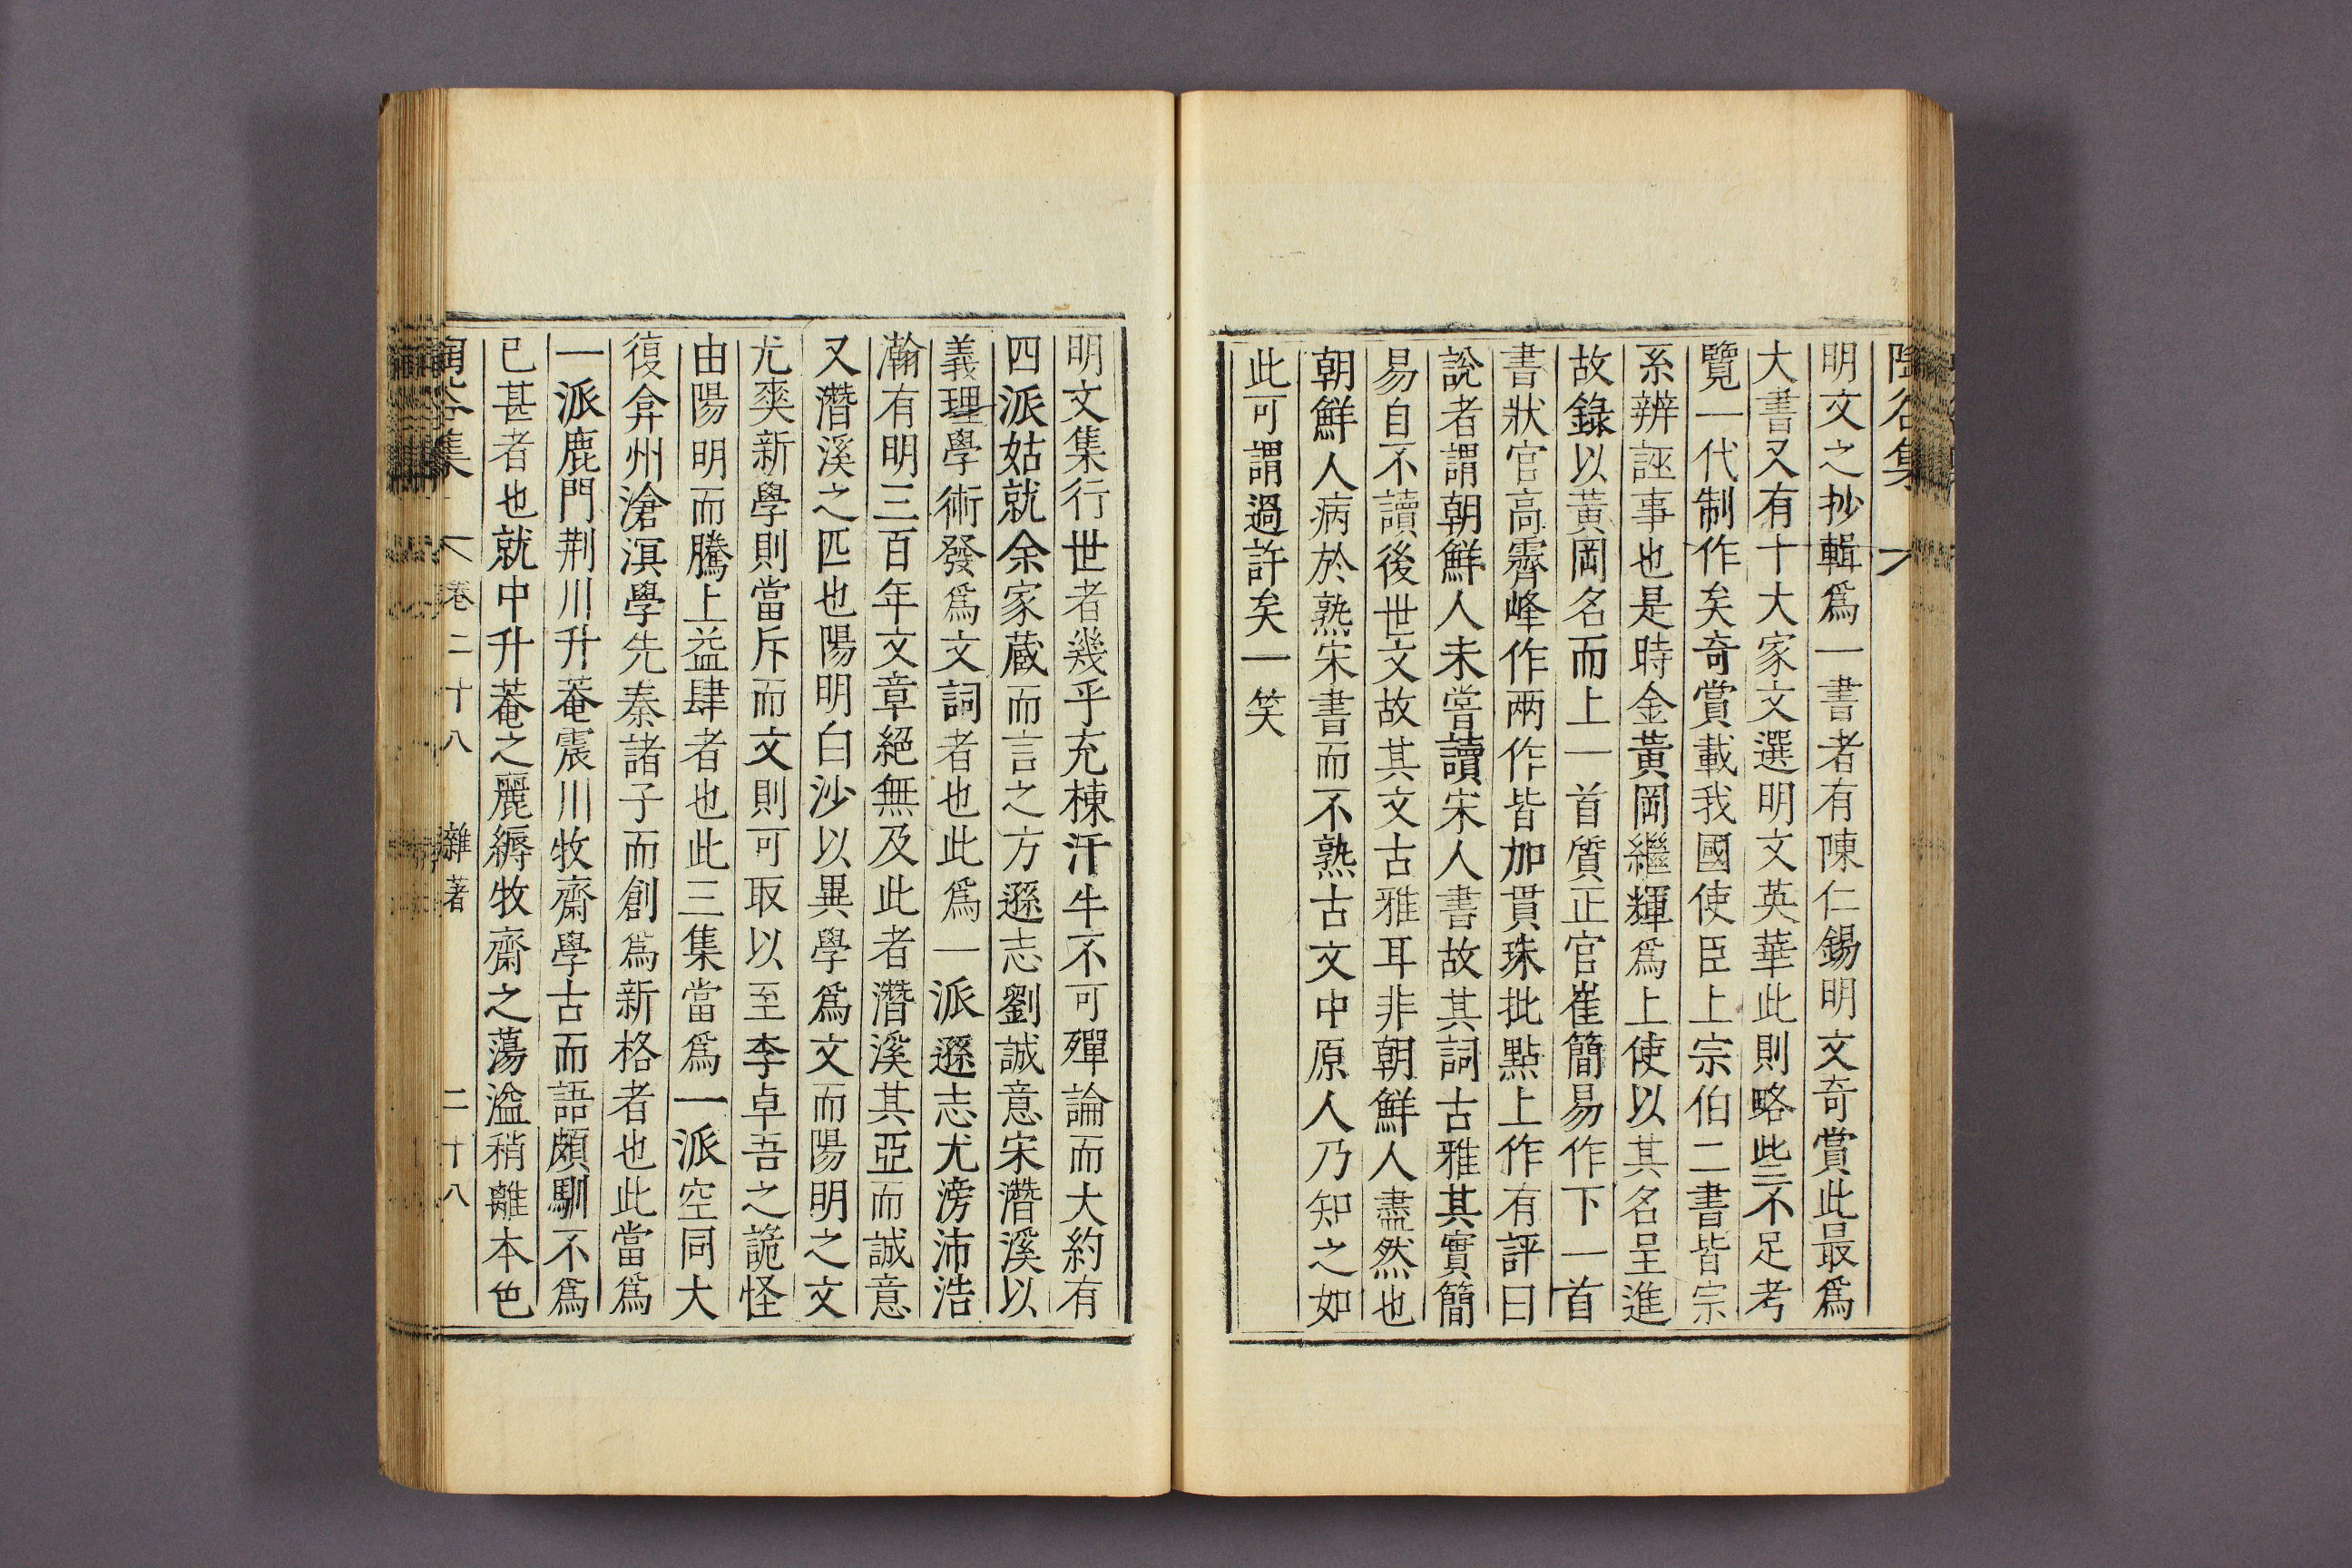 明文之抄輯爲一書者有陳仁錫明文奇賞此最爲
大書又有十大家文選明文英華此則略些不足考
覽一代制作矣奇賞載我國使臣上宗伯二書皆宗
系辨誣事也是時金黃岡繼輝爲上使以其名呈進
故錄以黃岡名而上一首質正官崔簡易作下一首
書狀官高霽峰作兩作皆加貫珠批點上作有評曰
說者謂朝鮮人未嘗讀宋人書故其詞古雅其實簡
易自不讀後世文故其文古雅耳非朝鮮人盡然也
朝鮮人病於熟宋書而不熟古文中原人乃知之如
此可謂過許矣一笑
明文集行世者幾乎充棟汗牛不可殫論而大約有
四派姑就余家藏而言之方遜志劉誠意宋潛溪以
義理學術發爲文詞者也此爲一派遜志尤滂沛浩
瀚有明三百年文章絕無及此者潛溪其亞而誠意
又潛溪之匹也陽明白沙以異學爲文而陽明之文
尤爽新學則當斥而文則可取以至李卓吾之詭怪
由陽明而騰上益肆者也此三集當爲一派空同大
復弇州滄溟學先秦諸子而創爲新格者也此當爲
一派鹿門荆川升菴震川牧齋學古而語頗馴不爲
已甚者也就中升菴之麗縟牧齋之蕩溢稍離本色
集 卷二十八 雜著 二十八